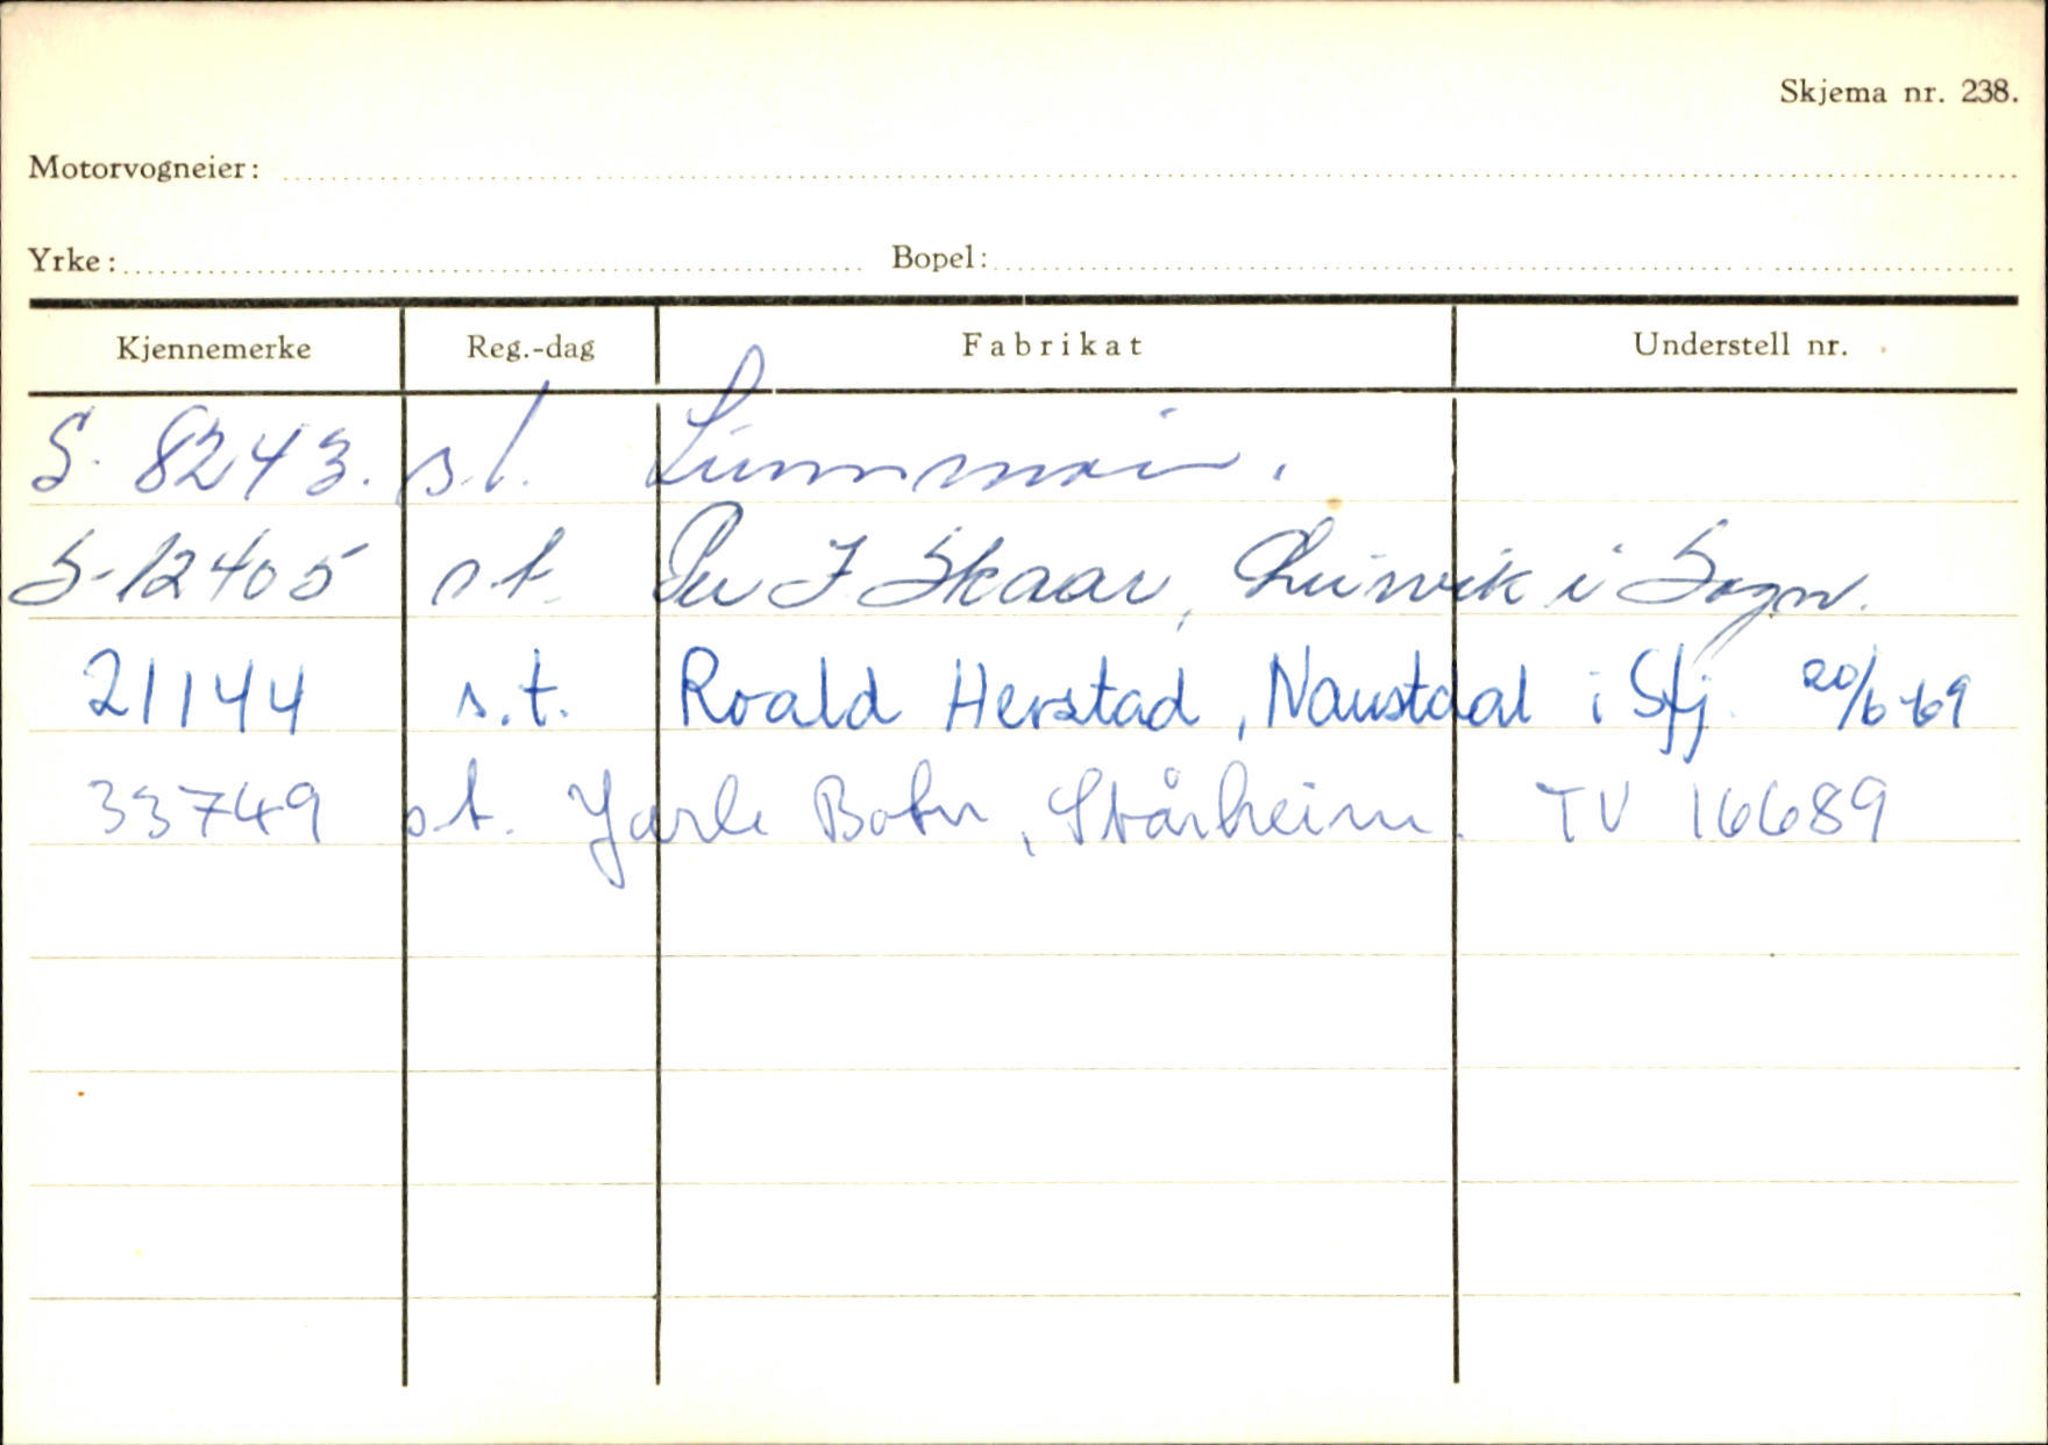 Skjema nr. 238.
Motorvogneier:
Yrke: Bopel:
Kjennemerke Reg.-dag Fabrikat Understell nr.
S-8243. s.t.
S-12405 s.t. Per J Skaar, i Sogn.
21144 s.t. Roald Herstad, Naustdal i Sfj. 20/6-69
33749 s.t. Jarle Botn, Stårheim. TV 16689